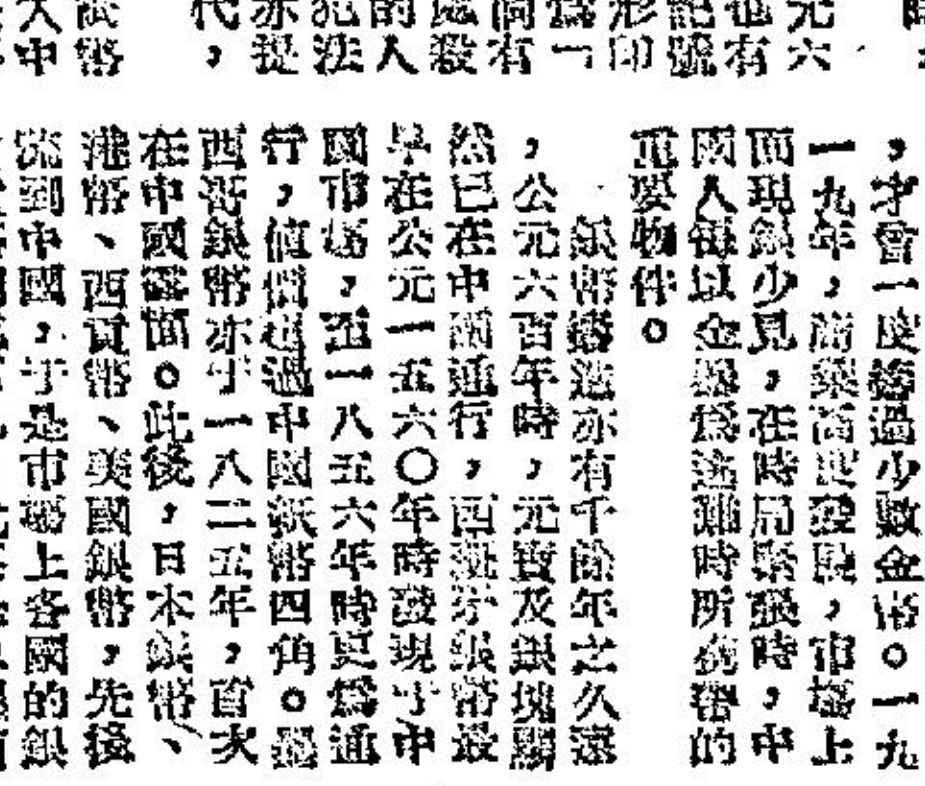 元六
也有
記號
形印
爲一
間有
處殺
的人
犯法
亦提
代，
紙幣
大中
，才會一度鑄過少數金幣。一九
一九年，商業高度發展，市場上
而現銀少見，在時局緊張時，中
國人每以金條爲逃難時所攜帶的
重要物件。
銀幣鑄造亦有千餘年之久遠
，公元六百年時，元寶及銀塊顯
然已在中國通行，西班牙銀幣最
早在公元一五六〇年時發現于中
國市場，至一八五六年時更爲通
行，値價超過中國紙幣四角。墨
西哥銀幣亦于一八二五年，首次
在中國露面。此後，日本銀幣、
港幣、西貢幣、美國銀幣，先後
流到中國，于是市場上各國的銀